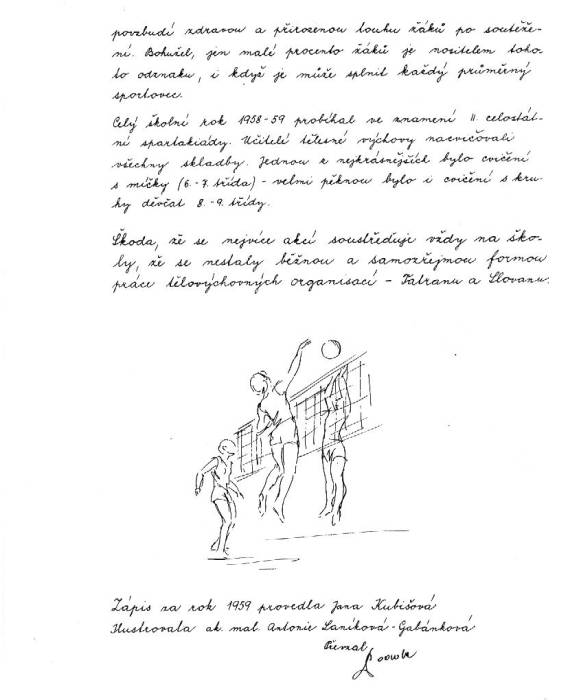 povzbudí zdravou a přirozenou touhu žáků po soutěže-
ní. Bohužel, jen malé procento žáků je nositelem toho-
to odznaku, i když je může splnit každý průměrný
sportovec.
Celý školní rok 1958-59 probíhal ve znamení II. celostát-
ní spartakiády. Učitelé tělesné výchovy nacvičovali
všechny skladby. Jednou z nejkrásnějších bylo cvičení
s míčky (6.-7. třída) - velmi pěknou bylo i cvičení s kru-
hy děvčat 8.-9. třídy.
Škoda, že se nejvíce akcí soustřeďuje vždy na ško-
ly, že se nestaly běžnou a samozřejmou formou
práce tělovýchovných organisací - Tatranu a Slovanu.
Zápis za rok 1959 provedla Jana Kubišová
Ilustrovala ak. mal. Antonie Laníková-Gabánková